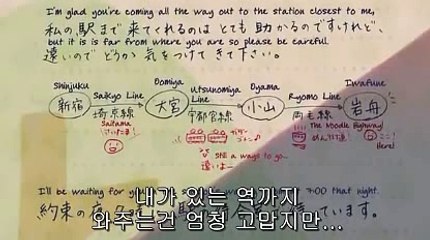 I'm glad you're coming all the way out to the station closest to me,
私の駅まで来てくれるのは とても 助かるのですけれど、
but it is far from where you are so please be careful.
遠いので どうか 気をつけて きて下さい。
Shinjuku Saikyo Line Oomiya Utsunomiya Line Oyama Ryomo Line Iwafune
新宿 埼京線 大宮 宇都宮線 小山 両毛線 岩舟
Saitama
The Noodle Highway!
Here!
Still a ways to go...
遠いよー
I'll be waiting for you 7:00 that night.
約束の夜 待 ています。
내가 있는 역까지
와주는건 엄청 고맙지만...